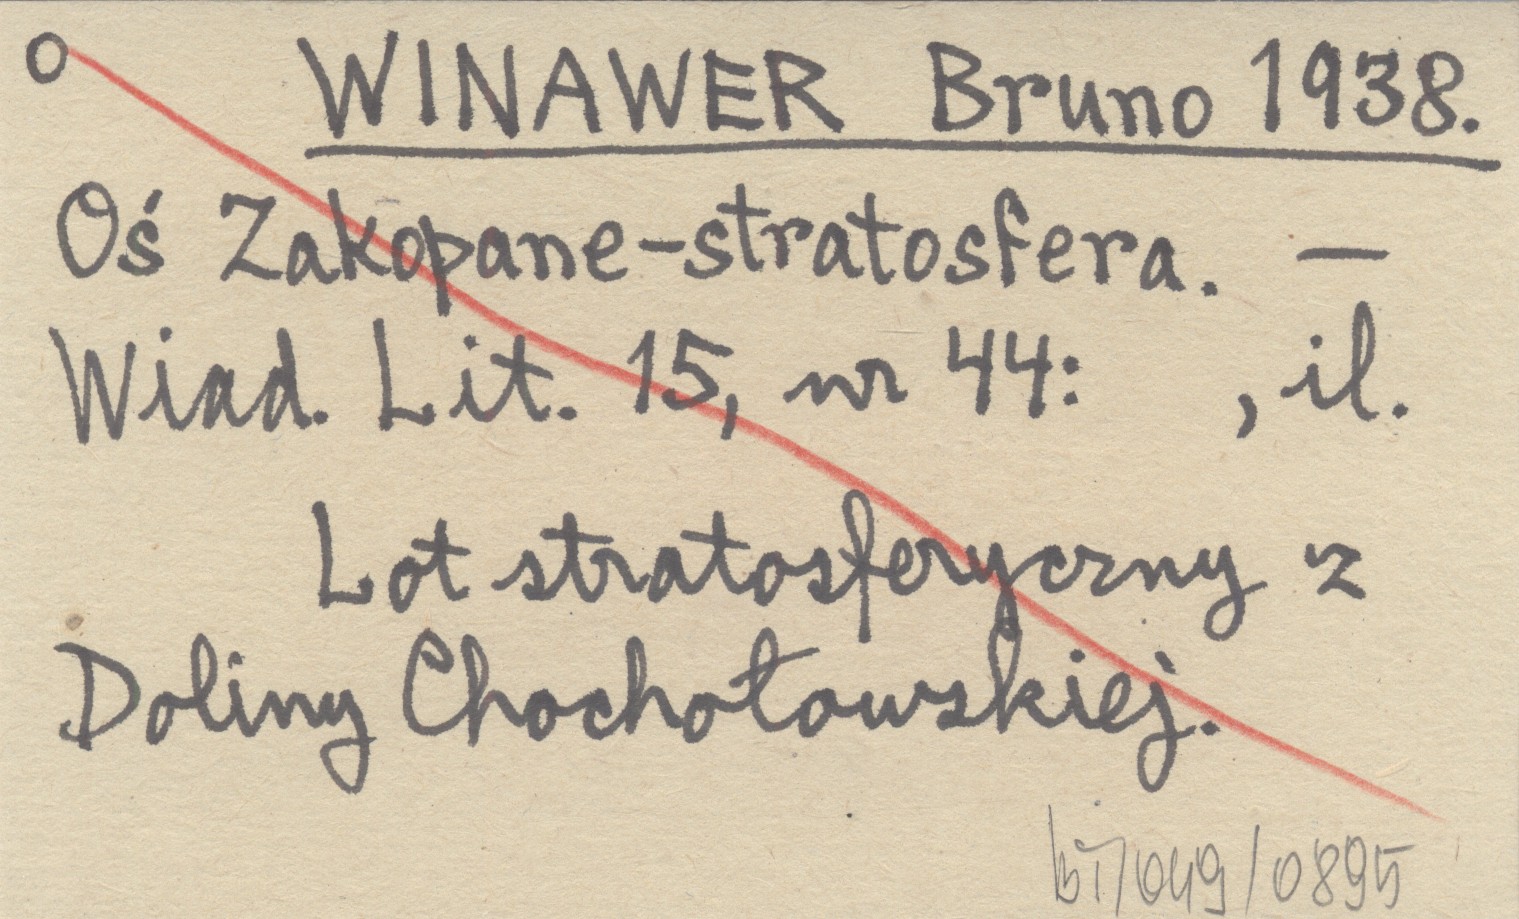 O WINAWER Bruno 1938.
Oś Zakopane-stratosfera. —
Wiad. Lit. 15, nr 44: , il.
Lot stratosferyczny z
Doliny Chochołowskiej.
bi/049/0895